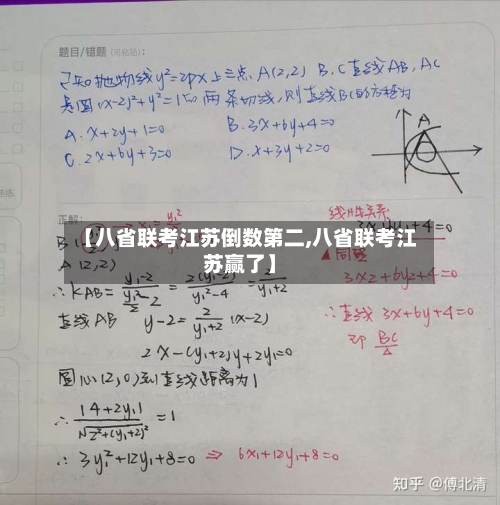 题目/错题（可粘贴）：
已知抛物线y²=2px上三点A(2,2) B,C直线AB,AC
是圆(x-2)²+y²=1的两条切线,则直线BC的方程为
A. x+2y+1=0 B. 3x+6y+4=0
C. 2x+6y+3=0 D. x+3y+2=0
A
正解：
【八省联考江苏倒数第二,八省联考江
苏赢了】
A(2,2)
∴KAB= = =2/(y₁+2)
直线AB y-2=2/(y₁+2)(x-2)
2x-(y₁+2)y+2y₁=0
圆心(2,0)到直线距离为1
∴|4+2y₁|/√(2²+(y₁+2)²)=1
∴3y₁²+12y₁+8=0 ⇒ 6x₁+12y₁+8=0
+4=0
▲同理
3x₂+6y₂+4=0
∴直线3x+6y+4=0
即BC
知乎 @傅北清